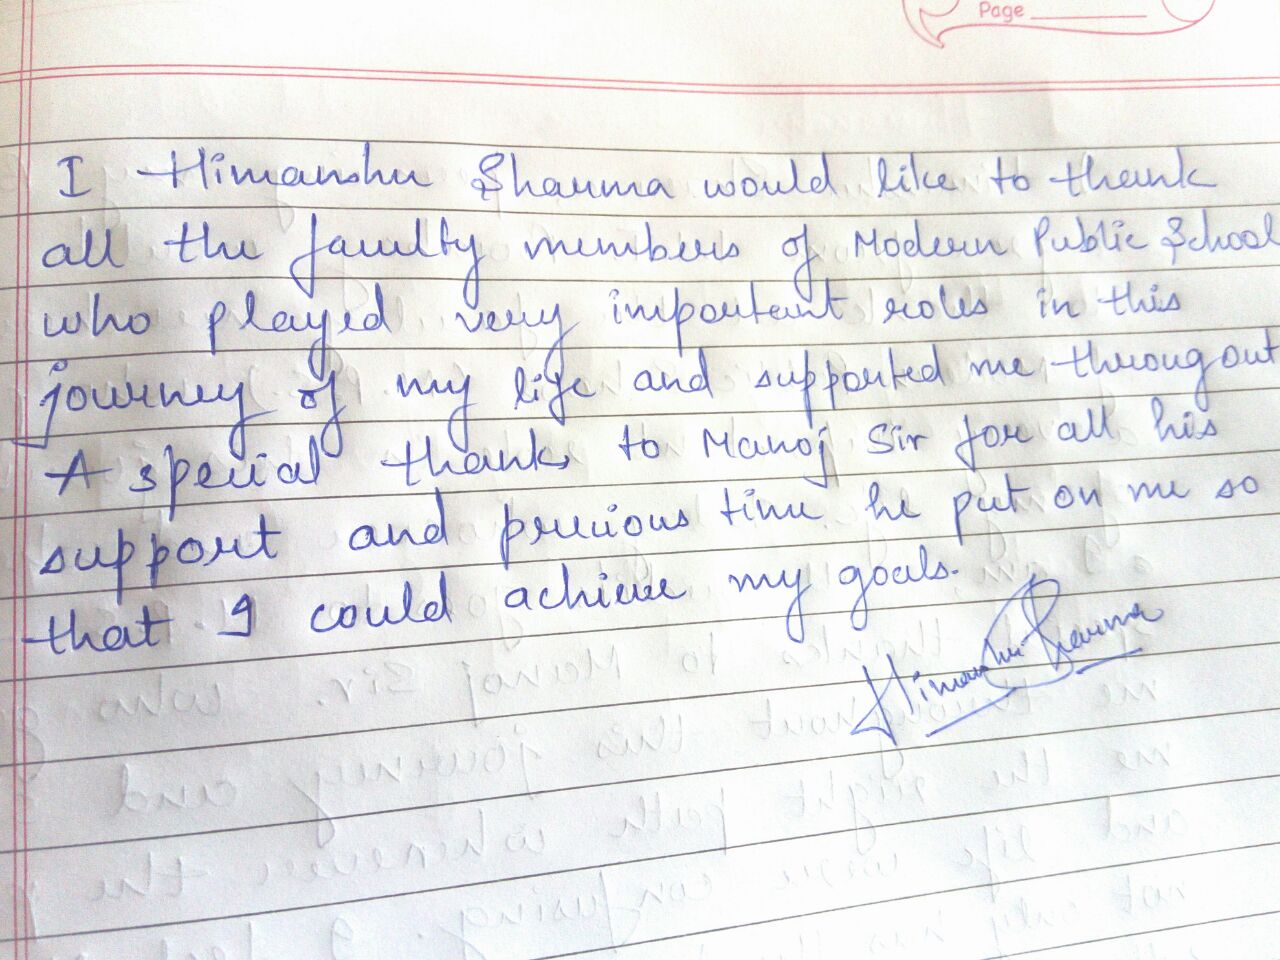 Page
I Himanshu Sharma would like to thank
all the faculty members of Modern Public School
who played very important roles in this
journey of my life and supported me througout
A special thanks to Manoj Sir for all his
support and precious time he put on me so
that I could achieve my goals.
Himanshu Sharma